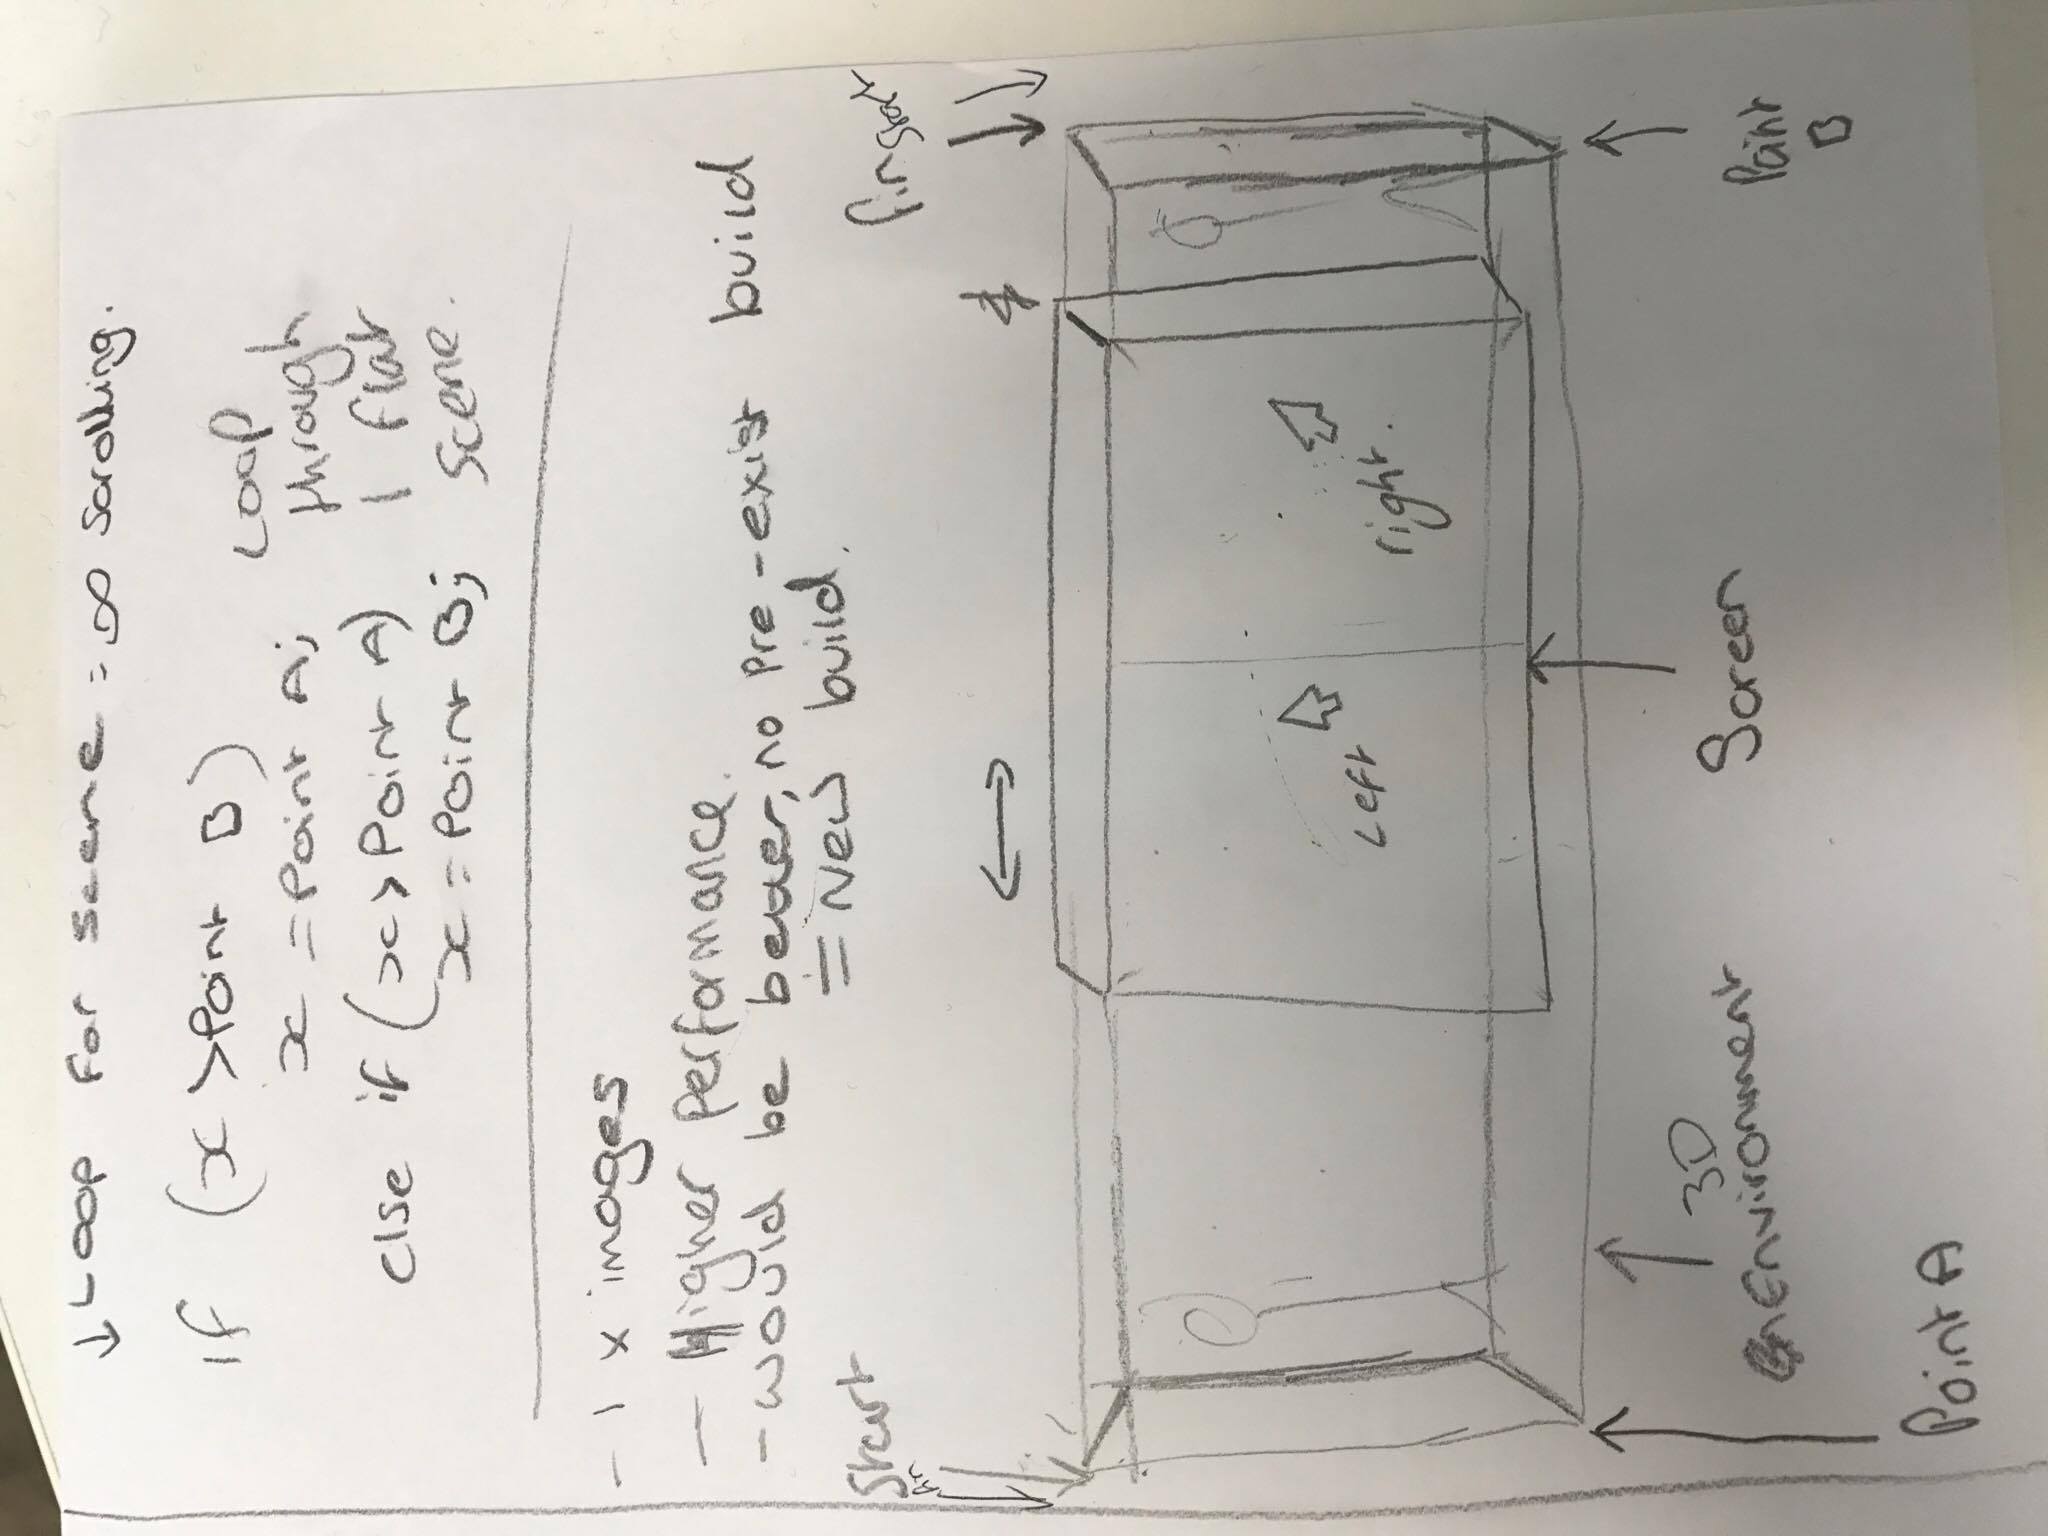 ↓ Loop for scene = ∞ scrolling.
if (x > Point B)
x = Point A;
else if (x > Point A)
x = Point B;
Loop
through
1 flat
scene.
- 1 x images
- Higher performance.
- would be beuer, no pre-exist build
= New build.
Start
fin
↔
Left
right.
Screen
3D
Environment
Point A
Point
B